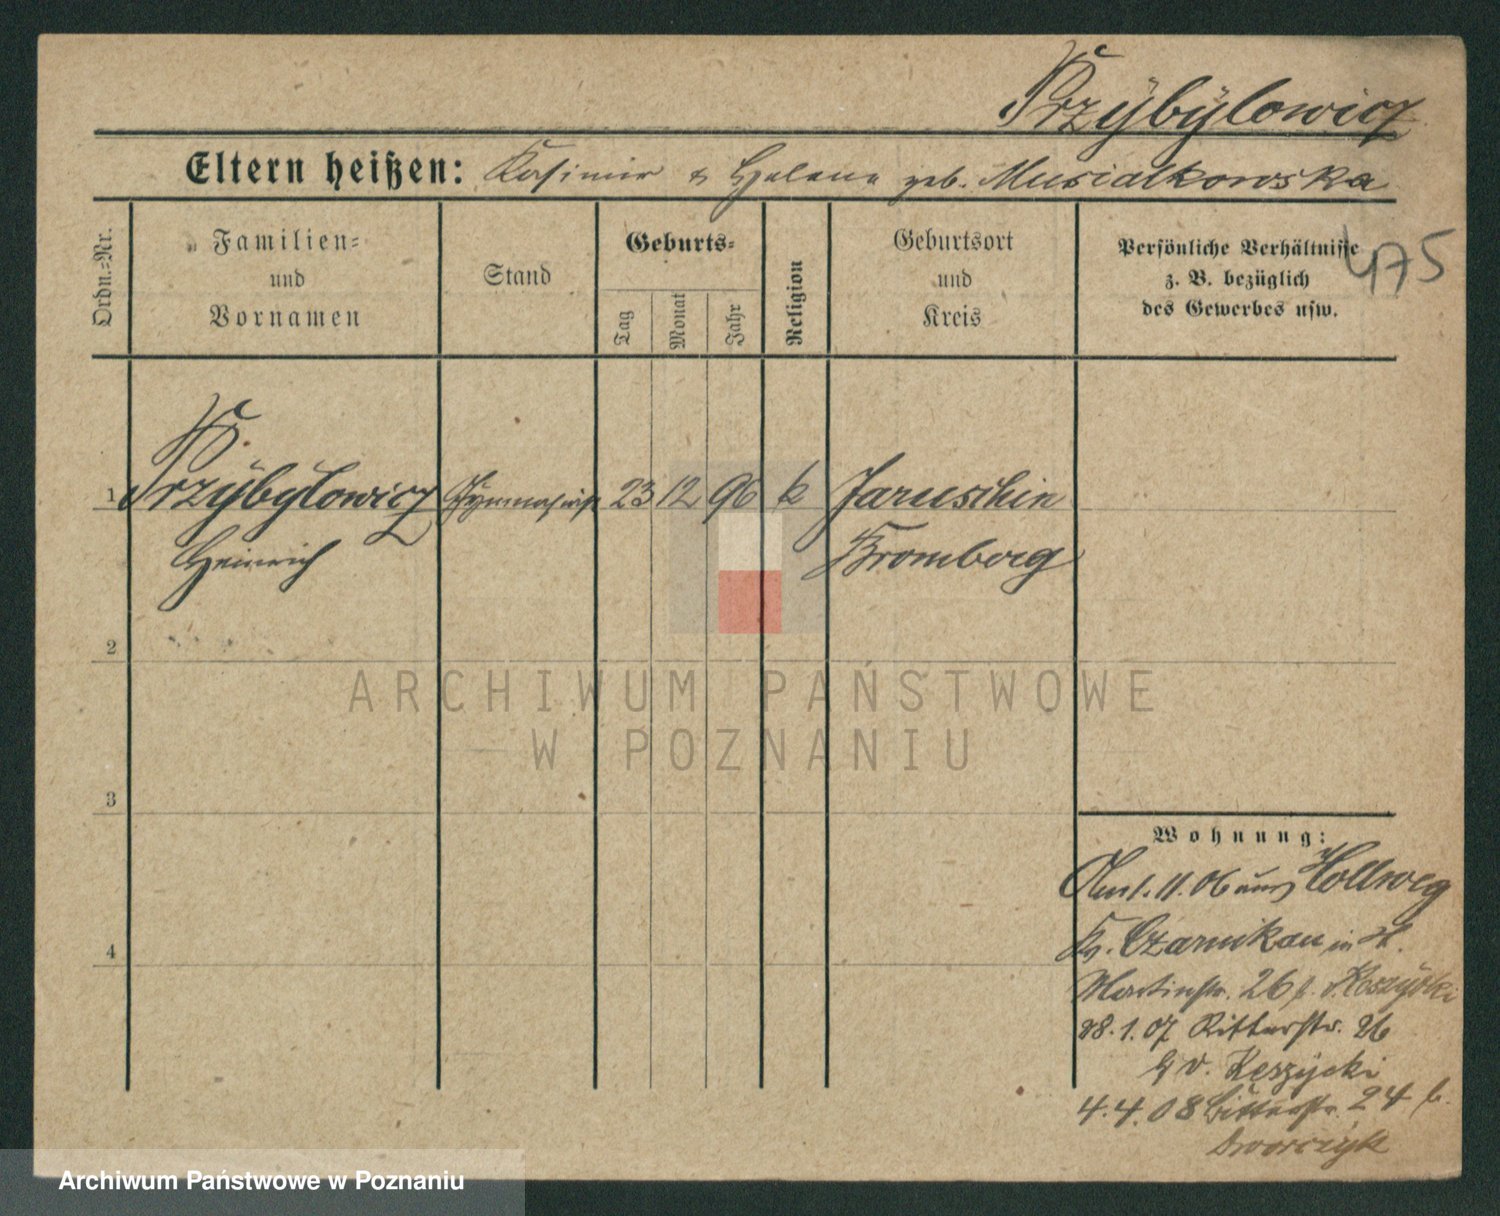 Przÿbÿlowicz
Eltern heißen: Kasimir & Helene geb. Musialkowska
475
Ordn.=Nr.
Familien=
und
Vornamen
Stand
Geburts=
Tag
Monat
Jahr
Religion
Geburtsort
und
Kreis
Persönliche Verhältnisse
z. B. bezüglich
des Gewerbes usw.
1 Przÿbÿlowicz Gymnasiast 23 12 96 k Jaruschin
Heinrich Bromberg
2
ARCHIWUM PAŃSTWOWE
W POZNANIU
3
Wohnung:
1.11.06 aus Hollweg
Kr. Czarnikau in
4
Martinstr. 26
28.1.07 Ritterstr. 26
b v. Keszycki
4.4.08 Ritterstr. 24 b.
Dworczyk
Archiwum Państwowe w Poznaniu